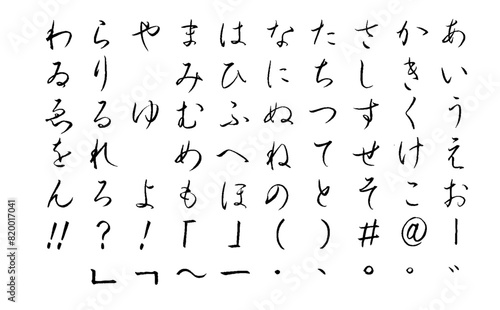 あいうえお｜゛
かきくけこ@゜
さしすせそ#。
たちつてと)、
なにぬねの(・
はひふへほ」ー
まみむめも「～
やゆよ!﹁
らりるれろ?﹂
わゐゑをん!!
Adobe Stock | #820017041